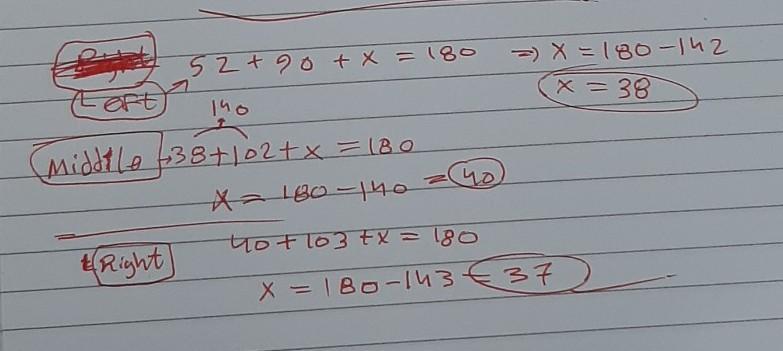 52 + 90 + x = 180 ⇒ x = 180 - 142
Left x = 38
140
Middle → 38 + 102 + x = 180
x = 180 - 140 = 40
40 + 103 + x = 180
Right
x = 180 - 143 = 37